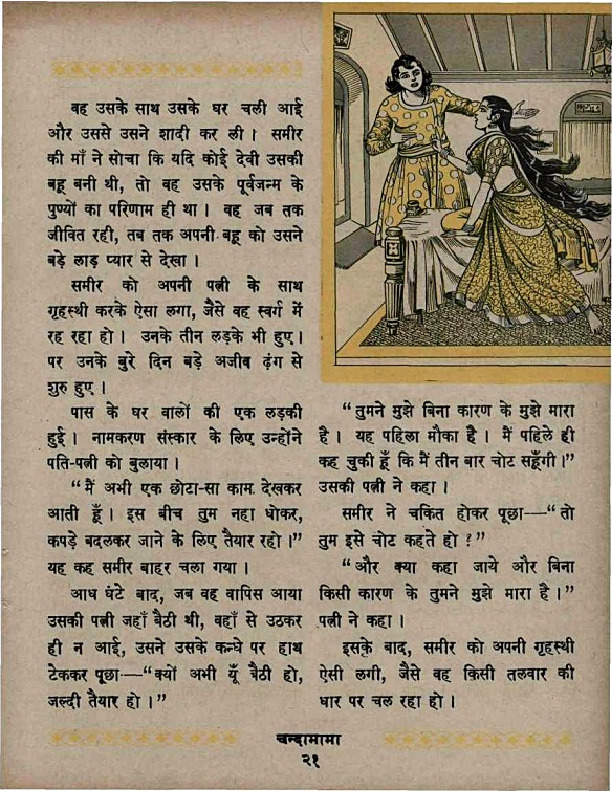 वह उसके साथ उसके घर चली आई
और उससे उसने शादी कर ली । समीर
की माँ ने सोचा कि यदि कोई देवी उसकी
बहू बनी थी, तो वह उसके पूर्वजन्म के
पुण्यों का परिणाम ही था । वह जब तक
जीवित रही, तब तक अपनी बहू को उसने
बड़े लाड़ प्यार से देखा ।
समीर को अपनी पत्नी के साथ
गृहस्थी करके ऐसा लगा, जैसे वह स्वर्ग में
रह रहा हो । उनके तीन लड़के भी हुए ।
पर उनके बुरे दिन बड़े अजीब ढ़ंग से
शुरु हुए ।
पास के घर वालों की एक लड़की
हुई । नामकरण संस्कार के लिए उन्होंने
पति-पत्नी को बुलाया ।
“मैं अभी एक छोटा-सा काम देखकर
आती हूँ । इस बीच तुम नहा धोकर,
कपड़े बदलकर जाने के लिए तैयार रहो ।”
यह कह समीर बाहर चला गया ।
आध घंटे बाद, जब वह वापिस आया
उसकी पत्नी जहाँ बैठी थी, वहाँ से उठकर
ही न आई, उसने उसके कन्धे पर हाथ
टेककर पूछा—“क्यों अभी यूँ बैठी हो,
जल्दी तैयार हो ।”
“तुमने मुझे बिना कारण के मुझे मारा
है । यह पहिला मौका है । मैं पहिले ही
कह चुकी हूँ कि मैं तीन बार चोट सहूँगी ।”
उसकी पत्नी ने कहा ।
समीर ने चकित होकर पूछा—“तो
तुम इसे चोट कहते हो ?”
“और क्या कहा जाये और बिना
किसी कारण के तुमने मुझे मारा है ।”
पत्नी ने कहा ।
इसके बाद, समीर को अपनी गृहस्थी
ऐसी लगी, जैसे वह किसी तलवार की
धार पर चल रहा हो ।
चन्दामामा
२१